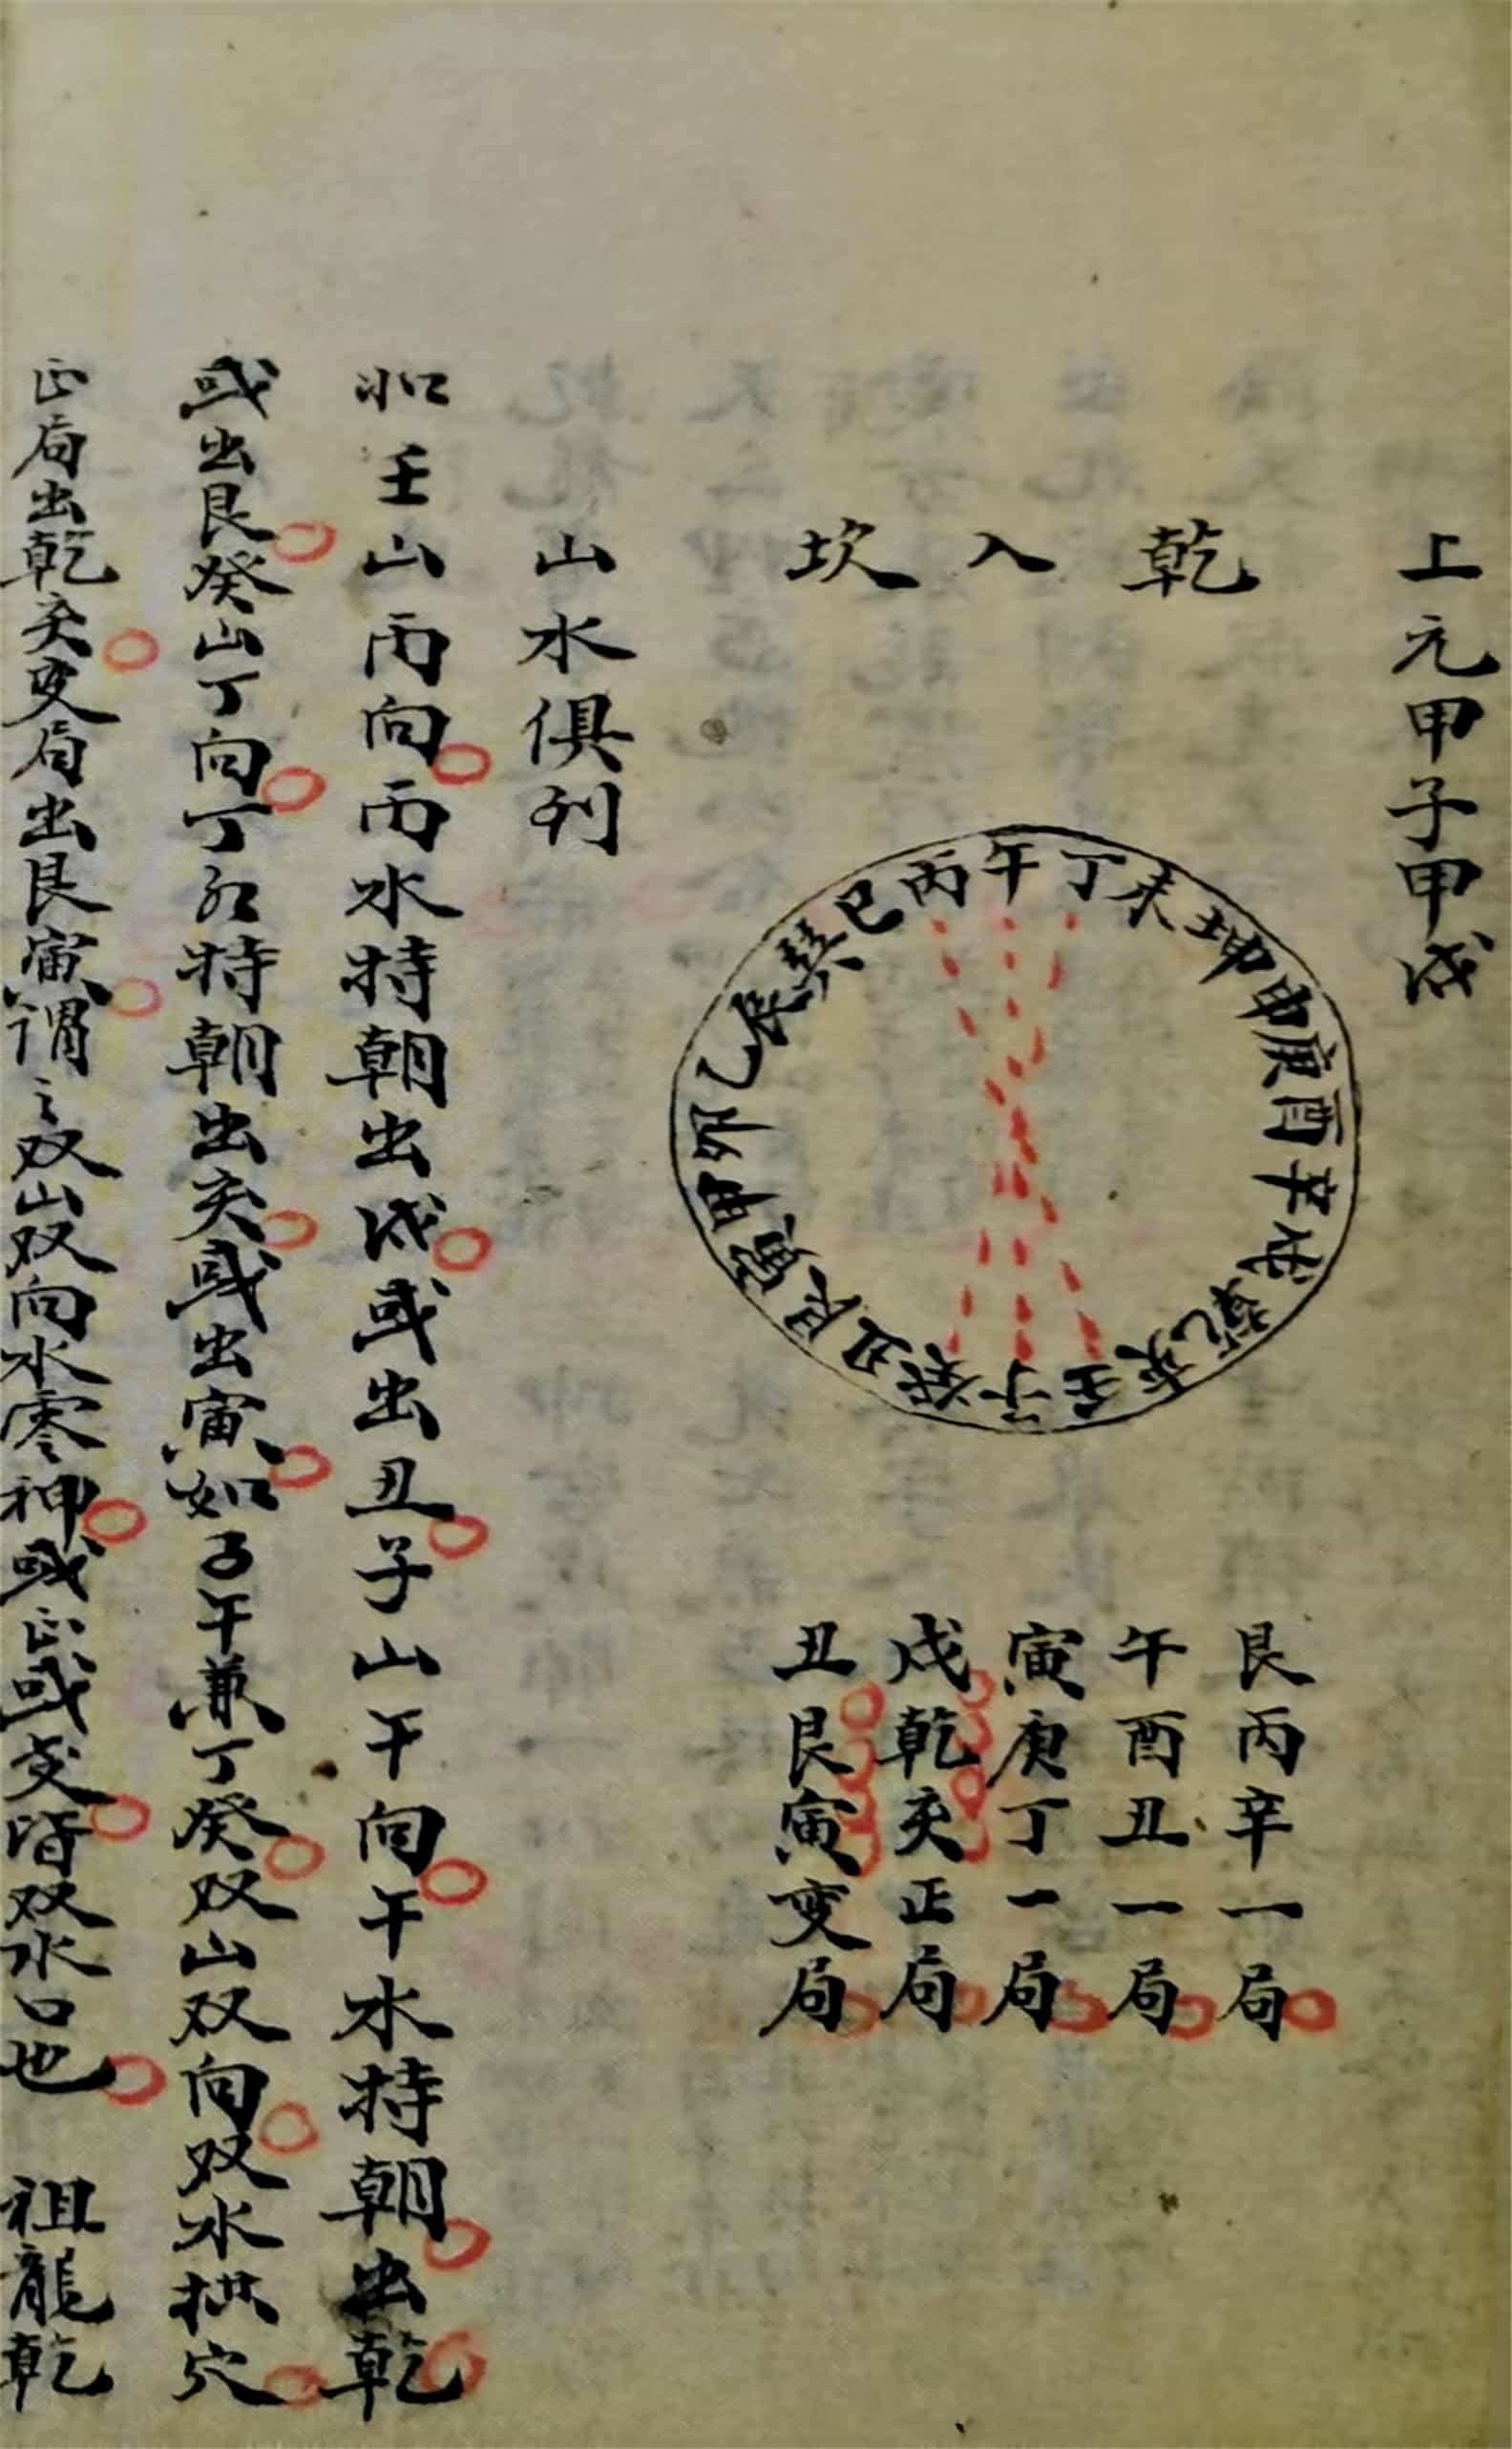 上元甲子甲戌
乾入坎
午丁未坤申庚酉辛戌乾亥壬子癸丑艮寅甲卯乙辰巽巳丙
艮丙辛一局
午酉丑一局
寅庚丁一局
戌乾亥正局
丑艮寅变局
山水俱列
如壬山丙向丙水特朝出戌或出丑子山午向午水特朝出乾
或出艮癸山丁向丁水特朝出亥或出寅如子午兼丁癸双山双向双水拱穴
正局出乾亥变局出艮寅谓之双山双向水零神或正或变皆双水口也 祖龍乾